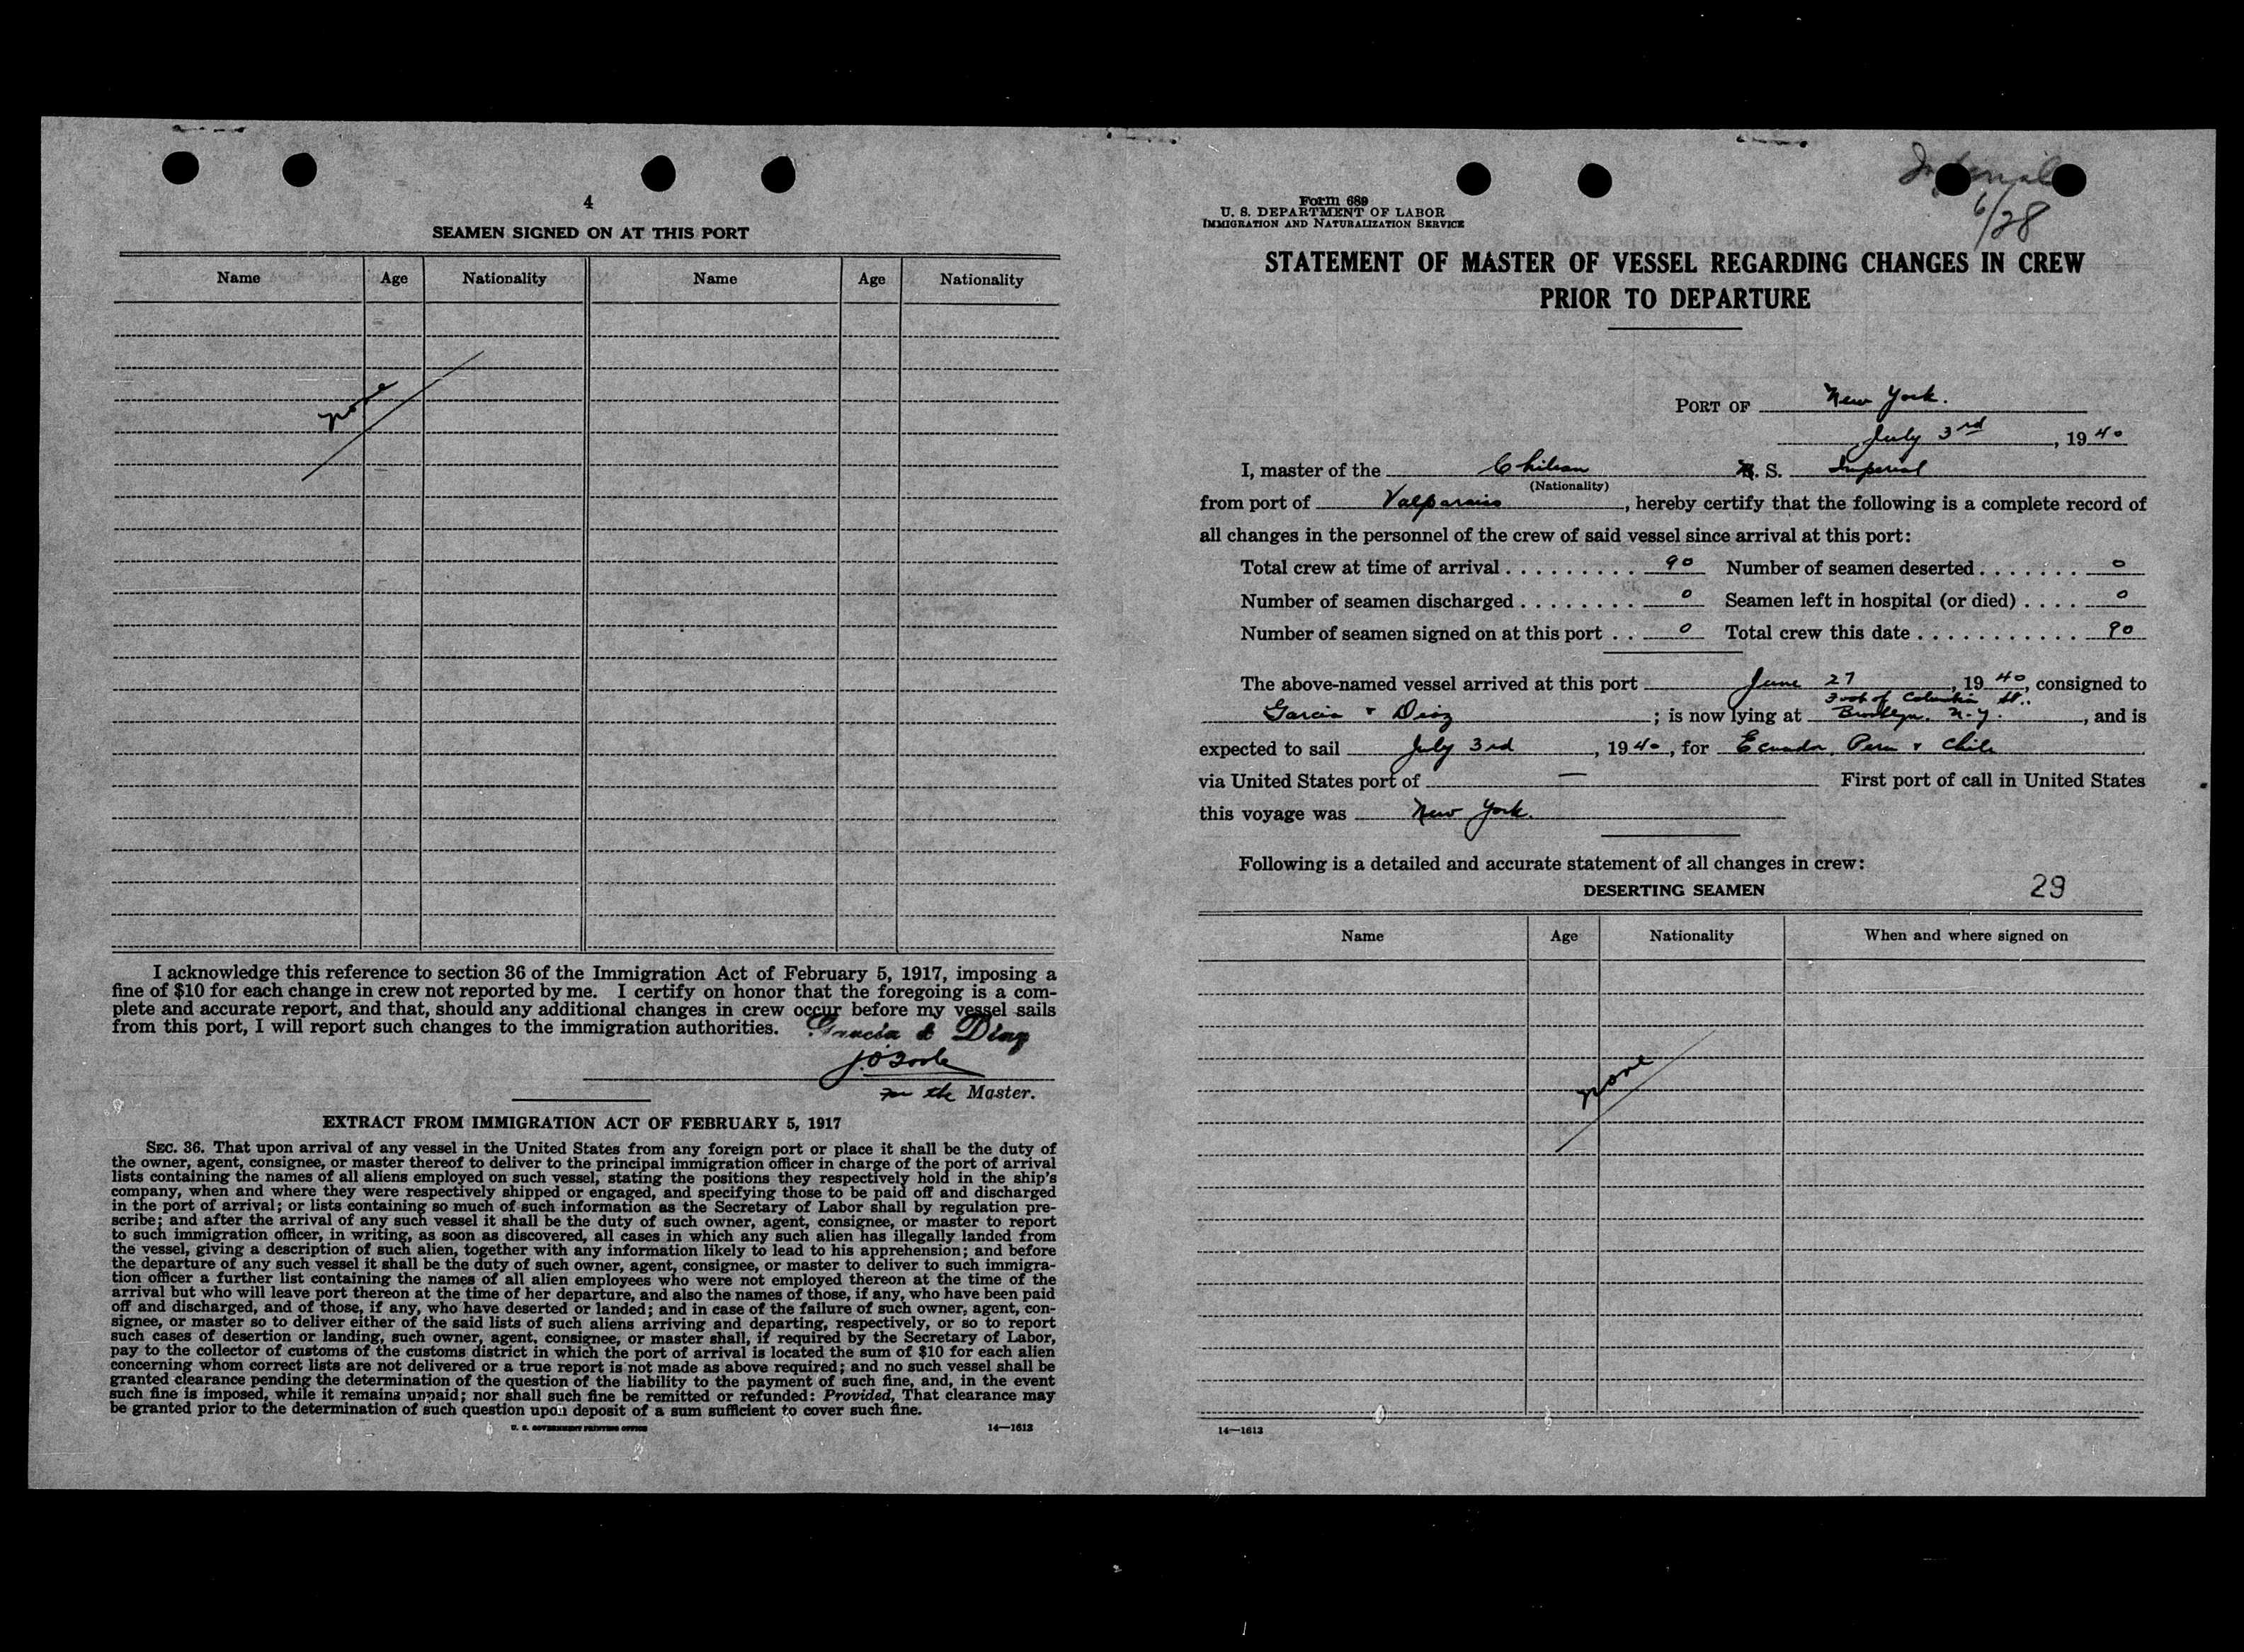 4
SEAMEN SIGNED ON AT THIS PORT
Name Age Nationality Name Age Nationality
none
I acknowledge this reference to section 36 of the Immigration Act of February 5, 1917, imposing a
fine of $10 for each change in crew not reported by me. I certify on honor that the foregoing is a com-
plete and accurate report, and that, should any additional changes in crew occur before my vessel sails
from this port, I will report such changes to the immigration authorities. Garcia & Diaz
for the Master.
EXTRACT FROM IMMIGRATION ACT OF FEBRUARY 5, 1917
SEC. 36. That upon arrival of any vessel in the United States from any foreign port or place it shall be the duty of
the owner, agent, consignee, or master thereof to deliver to the principal immigration officer in charge of the port of arrival
lists containing the names of all aliens employed on such vessel, stating the positions they respectively hold in the ship's
company, when and where they were respectively shipped or engaged, and specifying those to be paid off and discharged
in the port of arrival; or lists containing so much of such information as the Secretary of Labor shall by regulation pre-
scribe; and after the arrival of any such vessel it shall be the duty of such owner, agent, consignee, or master to report
to such immigration officer, in writing, as soon as discovered, all cases in which any such alien has illegally landed from
the vessel, giving a description of such alien, together with any information likely to lead to his apprehension; and before
the departure of any such vessel it shall be the duty of such owner, agent, consignee, or master to deliver to such immigra-
tion officer a further list containing the names of all alien employees who were not employed thereon at the time of the
arrival but who will leave port thereon at the time of her departure, and also the names of those, if any, who have been paid
off and discharged, and of those, if any, who have deserted or landed; and in case of the failure of such owner, agent, con-
signee, or master so to deliver either of the said lists of such aliens arriving and departing, respectively, or so to report
such cases of desertion or landing, such owner, agent, consignee, or master shall, if required by the Secretary of Labor,
pay to the collector of customs of the customs district in which the port of arrival is located the sum of $10 for each alien
concerning whom correct lists are not delivered or a true report is not made as above required; and no such vessel shall be
granted clearance pending the determination of the question of the liability to the payment of such fine, and, in the event
such fine is imposed, while it remains unpaid; nor shall such fine be remitted or refunded: Provided, That clearance may
be granted prior to the determination of such question upon deposit of a sum sufficient to cover such fine.
U. S. GOVERNMENT PRINTING OFFICE 14—1613
Imperial
6/28
Form 689
U. S. DEPARTMENT OF LABOR
IMMIGRATION AND NATURALIZATION SERVICE
STATEMENT OF MASTER OF VESSEL REGARDING CHANGES IN CREW
PRIOR TO DEPARTURE
PORT OF New York.
July 3rd, 1940
I, master of the Chilean S. Imperial
(Nationality)
from port of Valparaiso, hereby certify that the following is a complete record of
all changes in the personnel of the crew of said vessel since arrival at this port:
Total crew at time of arrival 90 Number of seamen deserted 0
Number of seamen discharged 0 Seamen left in hospital (or died) 0
Number of seamen signed on at this port 0 Total crew this date 90
The above-named vessel arrived at this port June 27, 1940, consigned to
Foot of Columbia St.
Garcia & Diaz; is now lying at Brooklyn, N.Y., and is
expected to sail July 3rd, 1940, for Ecuador, Peru & Chile
via United States port of — First port of call in United States
this voyage was New York.
Following is a detailed and accurate statement of all changes in crew:
DESERTING SEAMEN 29
Name Age Nationality When and where signed on
none
14—1613